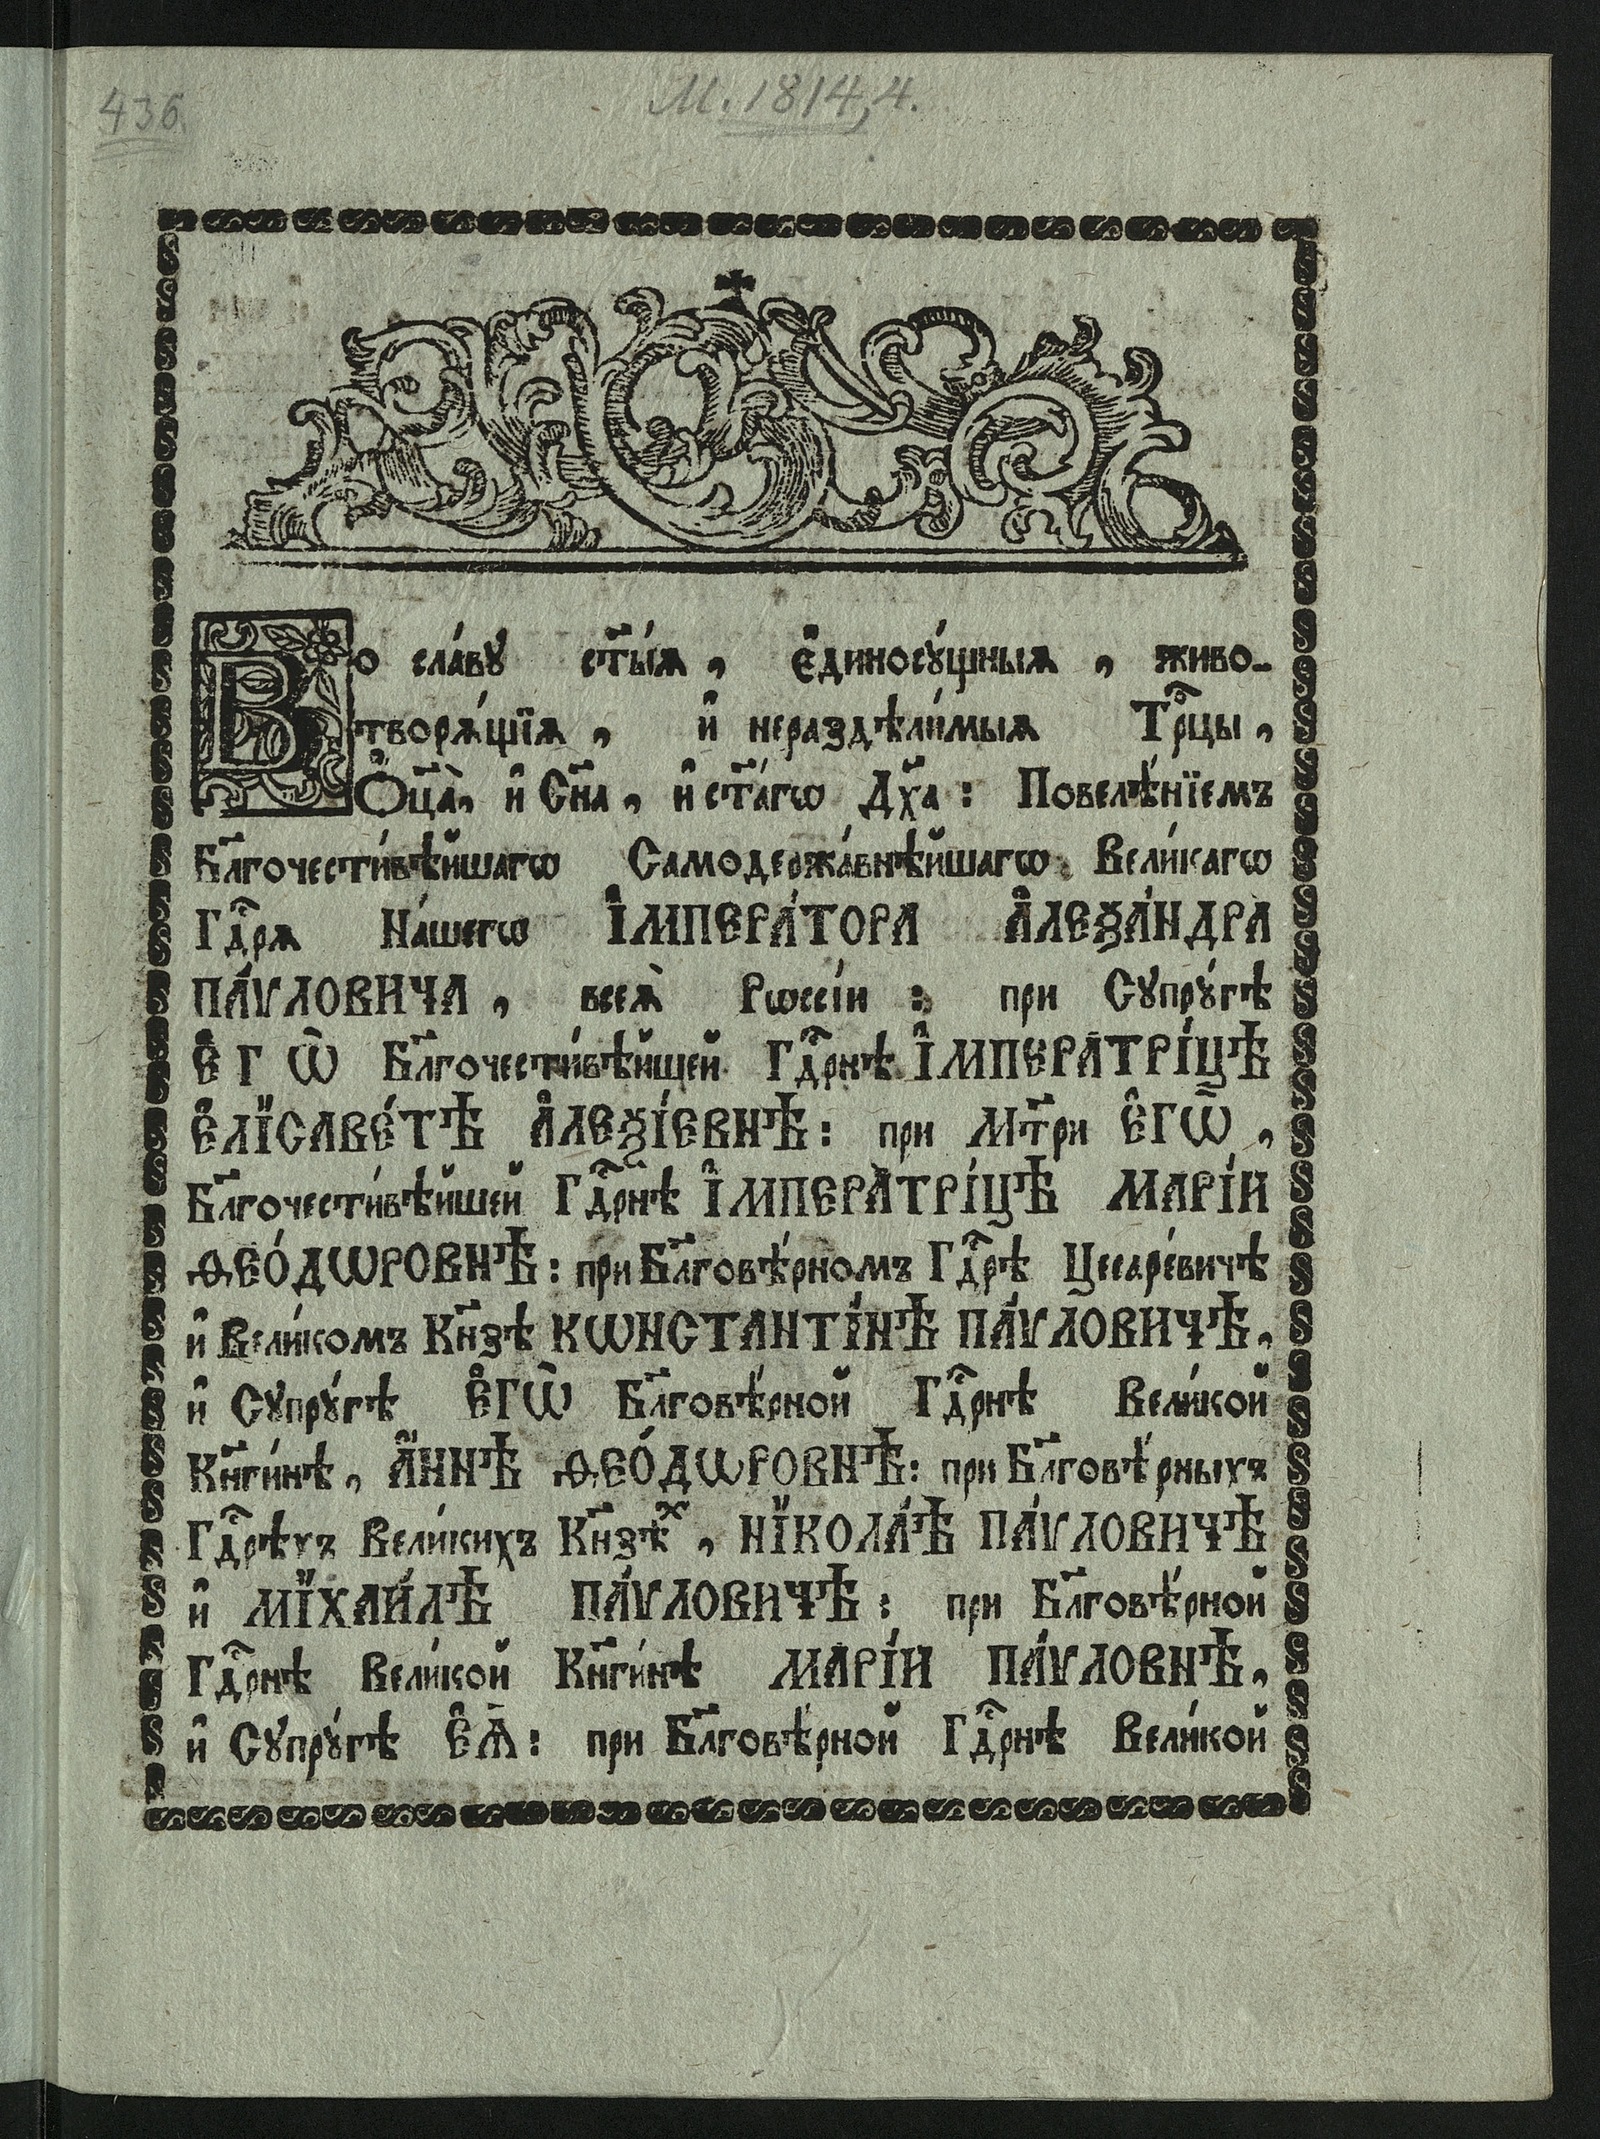 436
М. 1814, 4.
Во сла́ву ст҃ы́ѧ, є҆диносꙋ́щныѧ, живо-
творѧ́щїѧ, и҆ нераздѣли́мыѧ Трⷪ҇цы,
Ѻ҆ц҃а̀, и҆ Сн҃а, и҆ ст҃а́гѡ Дх҃а: Повелѣ́нїемъ
Бл҃гочести́вѣйшагѡ Самодержа́внѣйшагѡ Вели́кагѡ
Гдⷭ҇рѧ На́шегѡ І҆МПЕРА́ТОРА А҆ЛЕѮА́НДРА
ПА́ѴЛОВИЧА, всеѧ̀ Рѡссі́и: при Сꙋпрꙋ́гѣ
Е҆ГѠ̀ Бл҃гочести́вѣйшей Гдⷭ҇рнѣ І҆МПЕРАТРІ́ЦѢ
Е҆ЛІСАВЕ́ТѢ А҆ЛЕѮІ́ЕВНѢ: при Мт҃ри Е҆ГѠ̀,
Бл҃гочести́вѣйшей Гдⷭ҇рнѣ І҆МПЕРАТРІ́ЦѢ МАРІ́И
Ѳ҆ЕО́ДѠРОВНѢ: при Бл҃говѣ́рномъ Гдⷭ҇рѣ Цесаре́вичѣ
и҆ Вели́комъ Кн҃зѣ КѠНСТАНТІ́НѢ ПА́ѴЛОВИЧѢ,
и҆ Сꙋпрꙋ́гѣ Е҆ГѠ̀ Бл҃говѣ́рной Гдⷭ҇рнѣ Вели́кой
Кн҃ги́нѣ, А҆́ННѢ Ѳ҆ЕО́ДѠРОВНѢ: при Бл҃говѣ́рныхъ
Гдⷭ҇рѣхъ Вели́кихъ Кн҃зѣⷯ, НІКОЛА́Ѣ ПА́ѴЛОВИЧѢ
и҆ МІХАИ́ЛѢ ПА́ѴЛОВИЧѢ: при Бл҃говѣ́рной
Гдⷭ҇рнѣ Вели́кой Кн҃ги́нѣ МАРІ́И ПА́ѴЛОВНѢ,
и҆ Сꙋпрꙋ́гѣ Е҆Ѧ̀: при Бл҃говѣ́рной Гдⷭ҇рнѣ Вели́кой